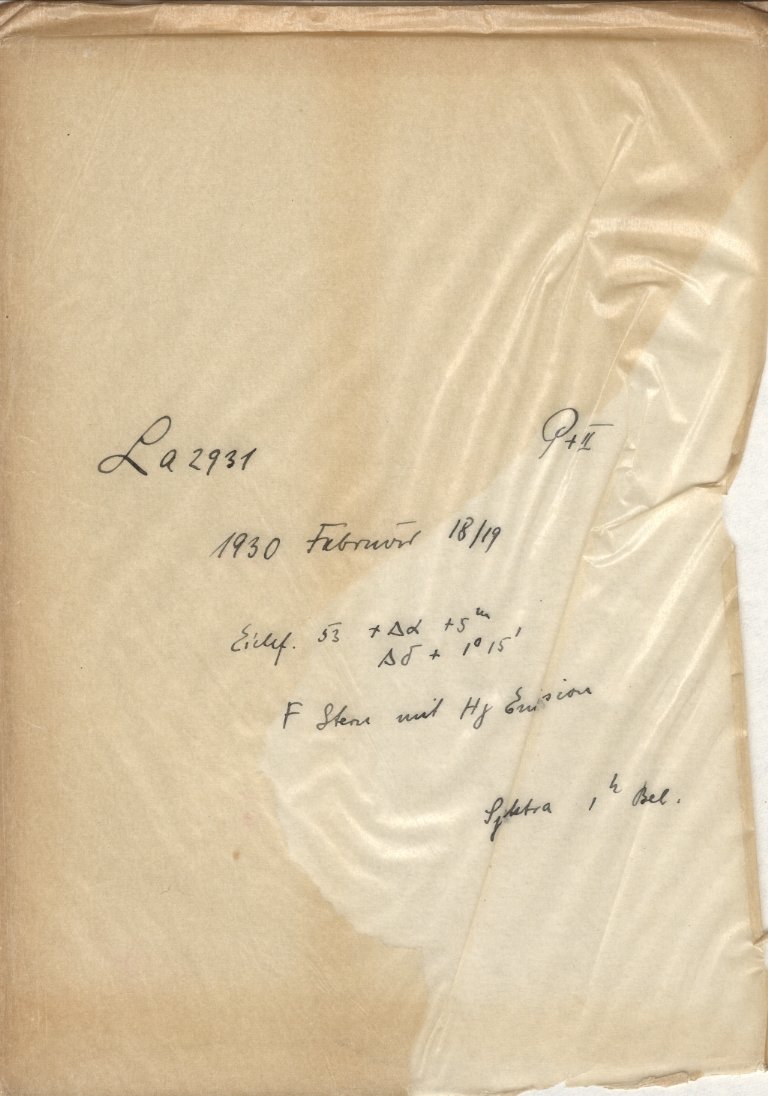 La 2931 P+II
1930 Februar 18/19
Eichf. 53 +Δα +5ᵐ
Δδ + 1° 15'
F Stern mit Hγ Emission
Spektra 1ʰ Bel.